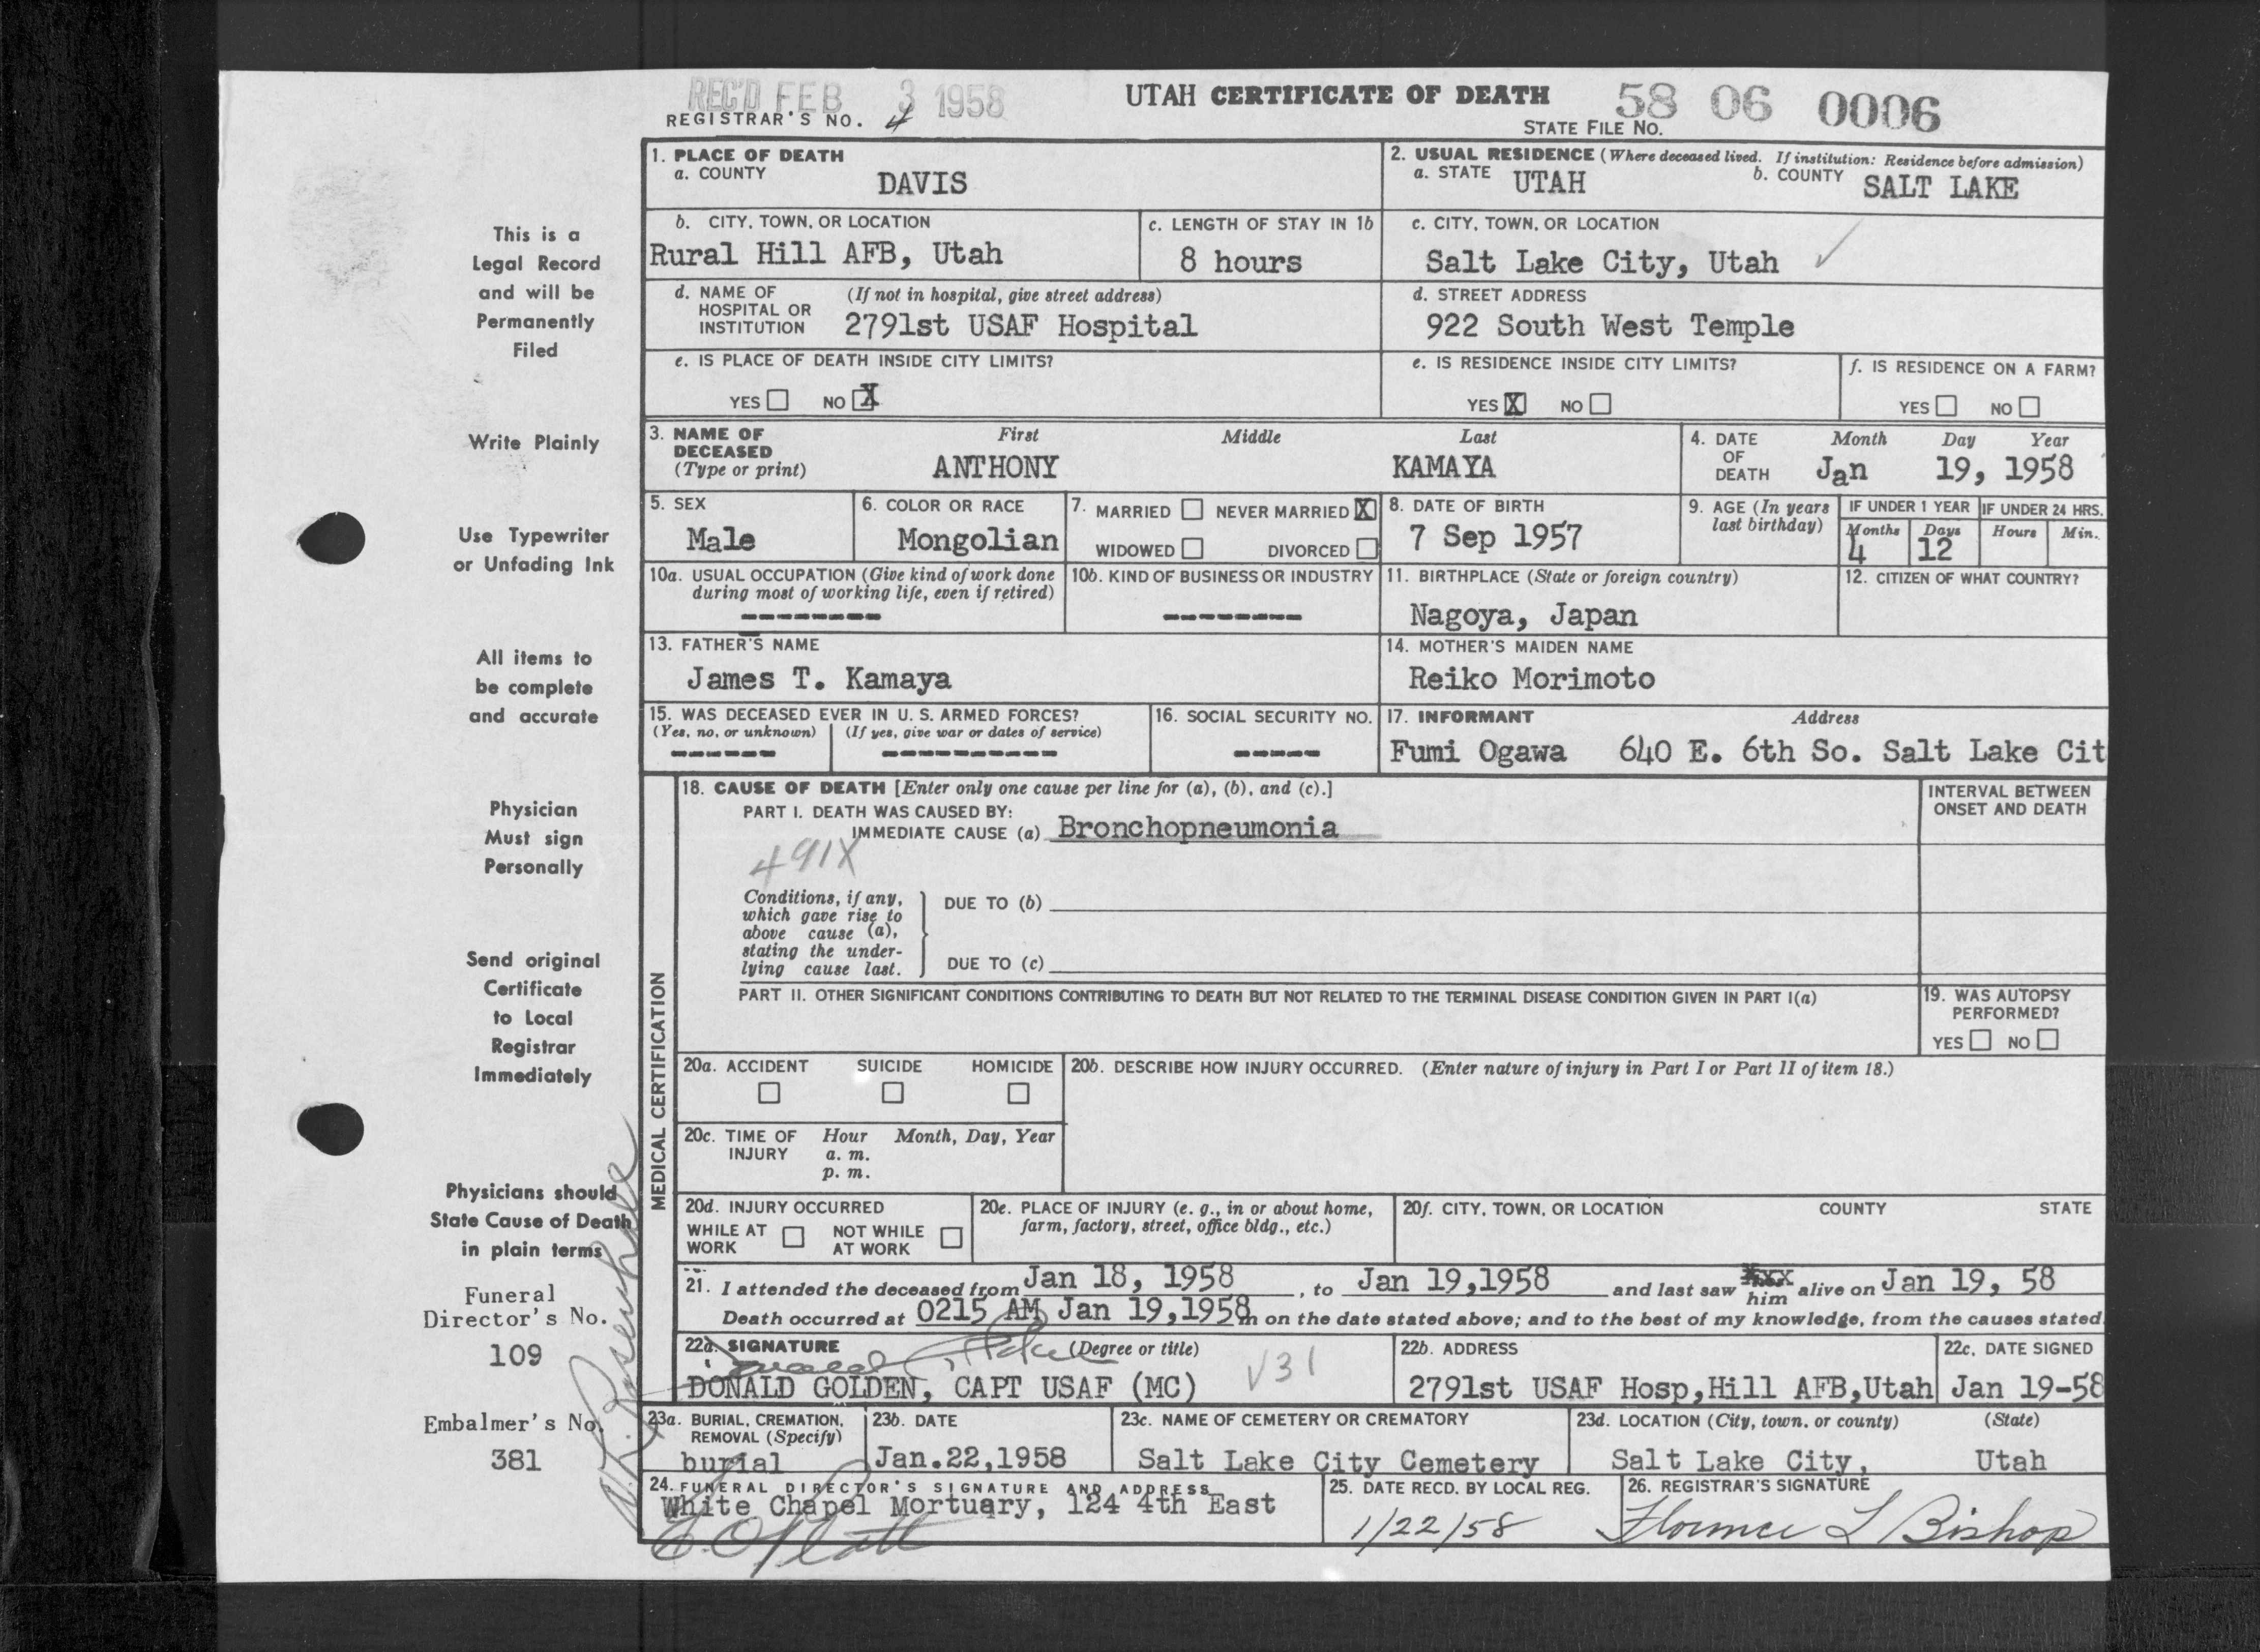 REC'D FEB 3 1958
UTAH CERTIFICATE OF DEATH
58 06 0006
REGISTRAR'S NO. 4
STATE FILE NO.
This is a
Legal Record
and will be
Permanently
Filed
Write Plainly
Use Typewriter
or Unfading Ink
All items to
be complete
and accurate
Physician
Must sign
Personally
Send original
Certificate
to Local
Registrar
Immediately
Physicians should
State Cause of Death
in plain terms
Funeral
Director's No.
109
Embalmer's No.
381
1. PLACE OF DEATH
a. COUNTY
DAVIS
2. USUAL RESIDENCE (Where deceased lived. If institution: Residence before admission)
a. STATE UTAH b. COUNTY SALT LAKE
b. CITY, TOWN, OR LOCATION
Rural Hill AFB, Utah
c. LENGTH OF STAY IN 1b
8 hours
c. CITY, TOWN, OR LOCATION
Salt Lake City, Utah ✓
d. NAME OF HOSPITAL OR INSTITUTION (If not in hospital, give street address)
2791st USAF Hospital
d. STREET ADDRESS
922 South West Temple
e. IS PLACE OF DEATH INSIDE CITY LIMITS?
YES ☐ NO X
e. IS RESIDENCE INSIDE CITY LIMITS?
YES X NO ☐
f. IS RESIDENCE ON A FARM?
YES ☐ NO ☐
3. NAME OF DECEASED (Type or print)
First Middle Last
ANTHONY KAMAYA
4. DATE OF DEATH
Month Day Year
Jan 19, 1958
5. SEX
Male
6. COLOR OR RACE
Mongolian
7. MARRIED ☐ NEVER MARRIED X
WIDOWED ☐ DIVORCED ☐
8. DATE OF BIRTH
7 Sep 1957
9. AGE (In years last birthday)
IF UNDER 1 YEAR
Months Days
4 12
IF UNDER 24 HRS.
Hours Min.
10a. USUAL OCCUPATION (Give kind of work done during most of working life, even if retired)
--------
10b. KIND OF BUSINESS OR INDUSTRY
--------
11. BIRTHPLACE (State or foreign country)
Nagoya, Japan
12. CITIZEN OF WHAT COUNTRY?
13. FATHER'S NAME
James T. Kamaya
14. MOTHER'S MAIDEN NAME
Reiko Morimoto
15. WAS DECEASED EVER IN U. S. ARMED FORCES?
(Yes, no, or unknown) (If yes, give war or dates of service)
------ ----------
16. SOCIAL SECURITY NO.
-----
17. INFORMANT Address
Fumi Ogawa 640 E. 6th So. Salt Lake Cit
MEDICAL CERTIFICATION
18. CAUSE OF DEATH [Enter only one cause per line for (a), (b), and (c).]
INTERVAL BETWEEN ONSET AND DEATH
PART I. DEATH WAS CAUSED BY:
IMMEDIATE CAUSE (a) Bronchopneumonia
491X
Conditions, if any,
which gave rise to
above cause (a),
stating the under-
lying cause last.
DUE TO (b)
DUE TO (c)
PART II. OTHER SIGNIFICANT CONDITIONS CONTRIBUTING TO DEATH BUT NOT RELATED TO THE TERMINAL DISEASE CONDITION GIVEN IN PART I(a)
19. WAS AUTOPSY PERFORMED?
YES ☐ NO ☐
20a. ACCIDENT SUICIDE HOMICIDE
☐ ☐ ☐
20b. DESCRIBE HOW INJURY OCCURRED. (Enter nature of injury in Part I or Part II of item 18.)
20c. TIME OF INJURY Hour Month, Day, Year
a. m.
p. m.
20d. INJURY OCCURRED
WHILE AT WORK ☐ NOT WHILE AT WORK ☐
20e. PLACE OF INJURY (e. g., in or about home, farm, factory, street, office bldg., etc.)
20f. CITY, TOWN, OR LOCATION COUNTY STATE
21. I attended the deceased from Jan 18, 1958, to Jan 19,1958 and last saw xxx him alive on Jan 19, 58
Death occurred at 0215 AM Jan 19,1958 m on the date stated above; and to the best of my knowledge, from the causes stated.
22a. SIGNATURE (Degree or title)
DONALD GOLDEN, CAPT USAF (MC)
V31
22b. ADDRESS
2791st USAF Hosp,Hill AFB,Utah
22c. DATE SIGNED
Jan 19-58
23a. BURIAL, CREMATION, REMOVAL (Specify)
burial
23b. DATE
Jan.22,1958
23c. NAME OF CEMETERY OR CREMATORY
Salt Lake City Cemetery
23d. LOCATION (City, town, or county) (State)
Salt Lake City, Utah
24. FUNERAL DIRECTOR'S SIGNATURE AND ADDRESS
White Chapel Mortuary, 124 4th East
25. DATE RECD. BY LOCAL REG.
1/22/58
26. REGISTRAR'S SIGNATURE
Florence L Bishop